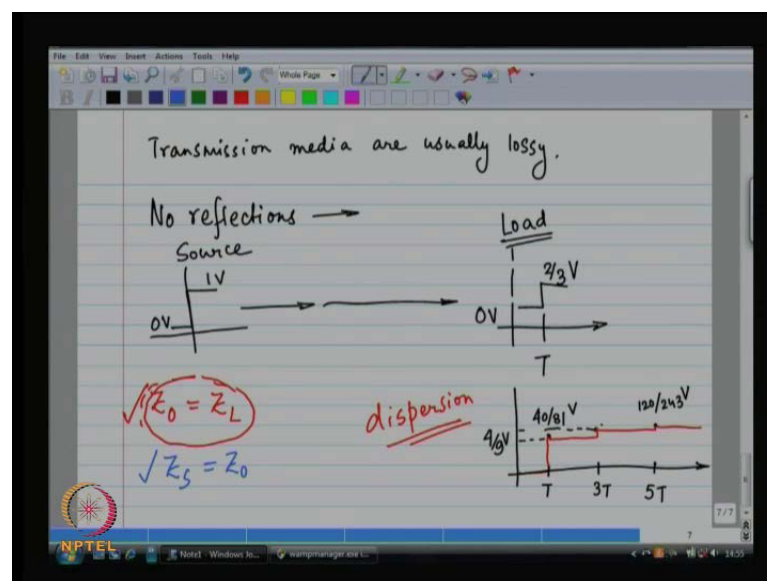 File Edit View Insert Actions Tools Help
Whole Page
B I
Transmission media are usually lossy.
No reflections →
Source
Load
1V
2/3 V
0V
0V
T
√ Z₀ = Z_L
dispersion
40/81 V
120/243 V
4/9 V
√ Z_S = Z₀
T 3T 5T
7/7
7
NPTEL
Note1 - Windows Jo...
wampmanager.exe (...
14:55